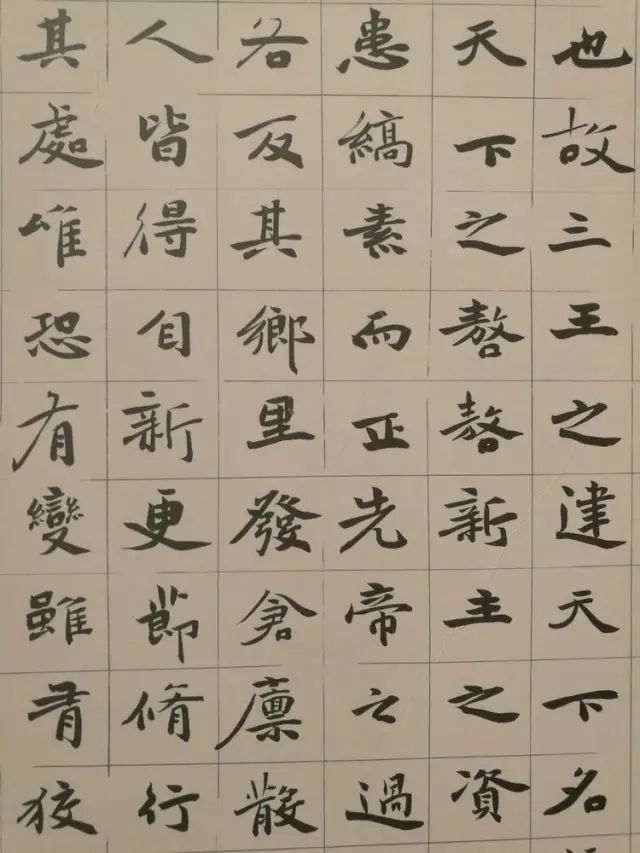 也故三王之建天下名
天下之嗸嗸新主之資
患縞素而正先帝之過
各反其鄉里發倉廩散
人皆得自新更節脩行
其處唯恐有變雖有狡